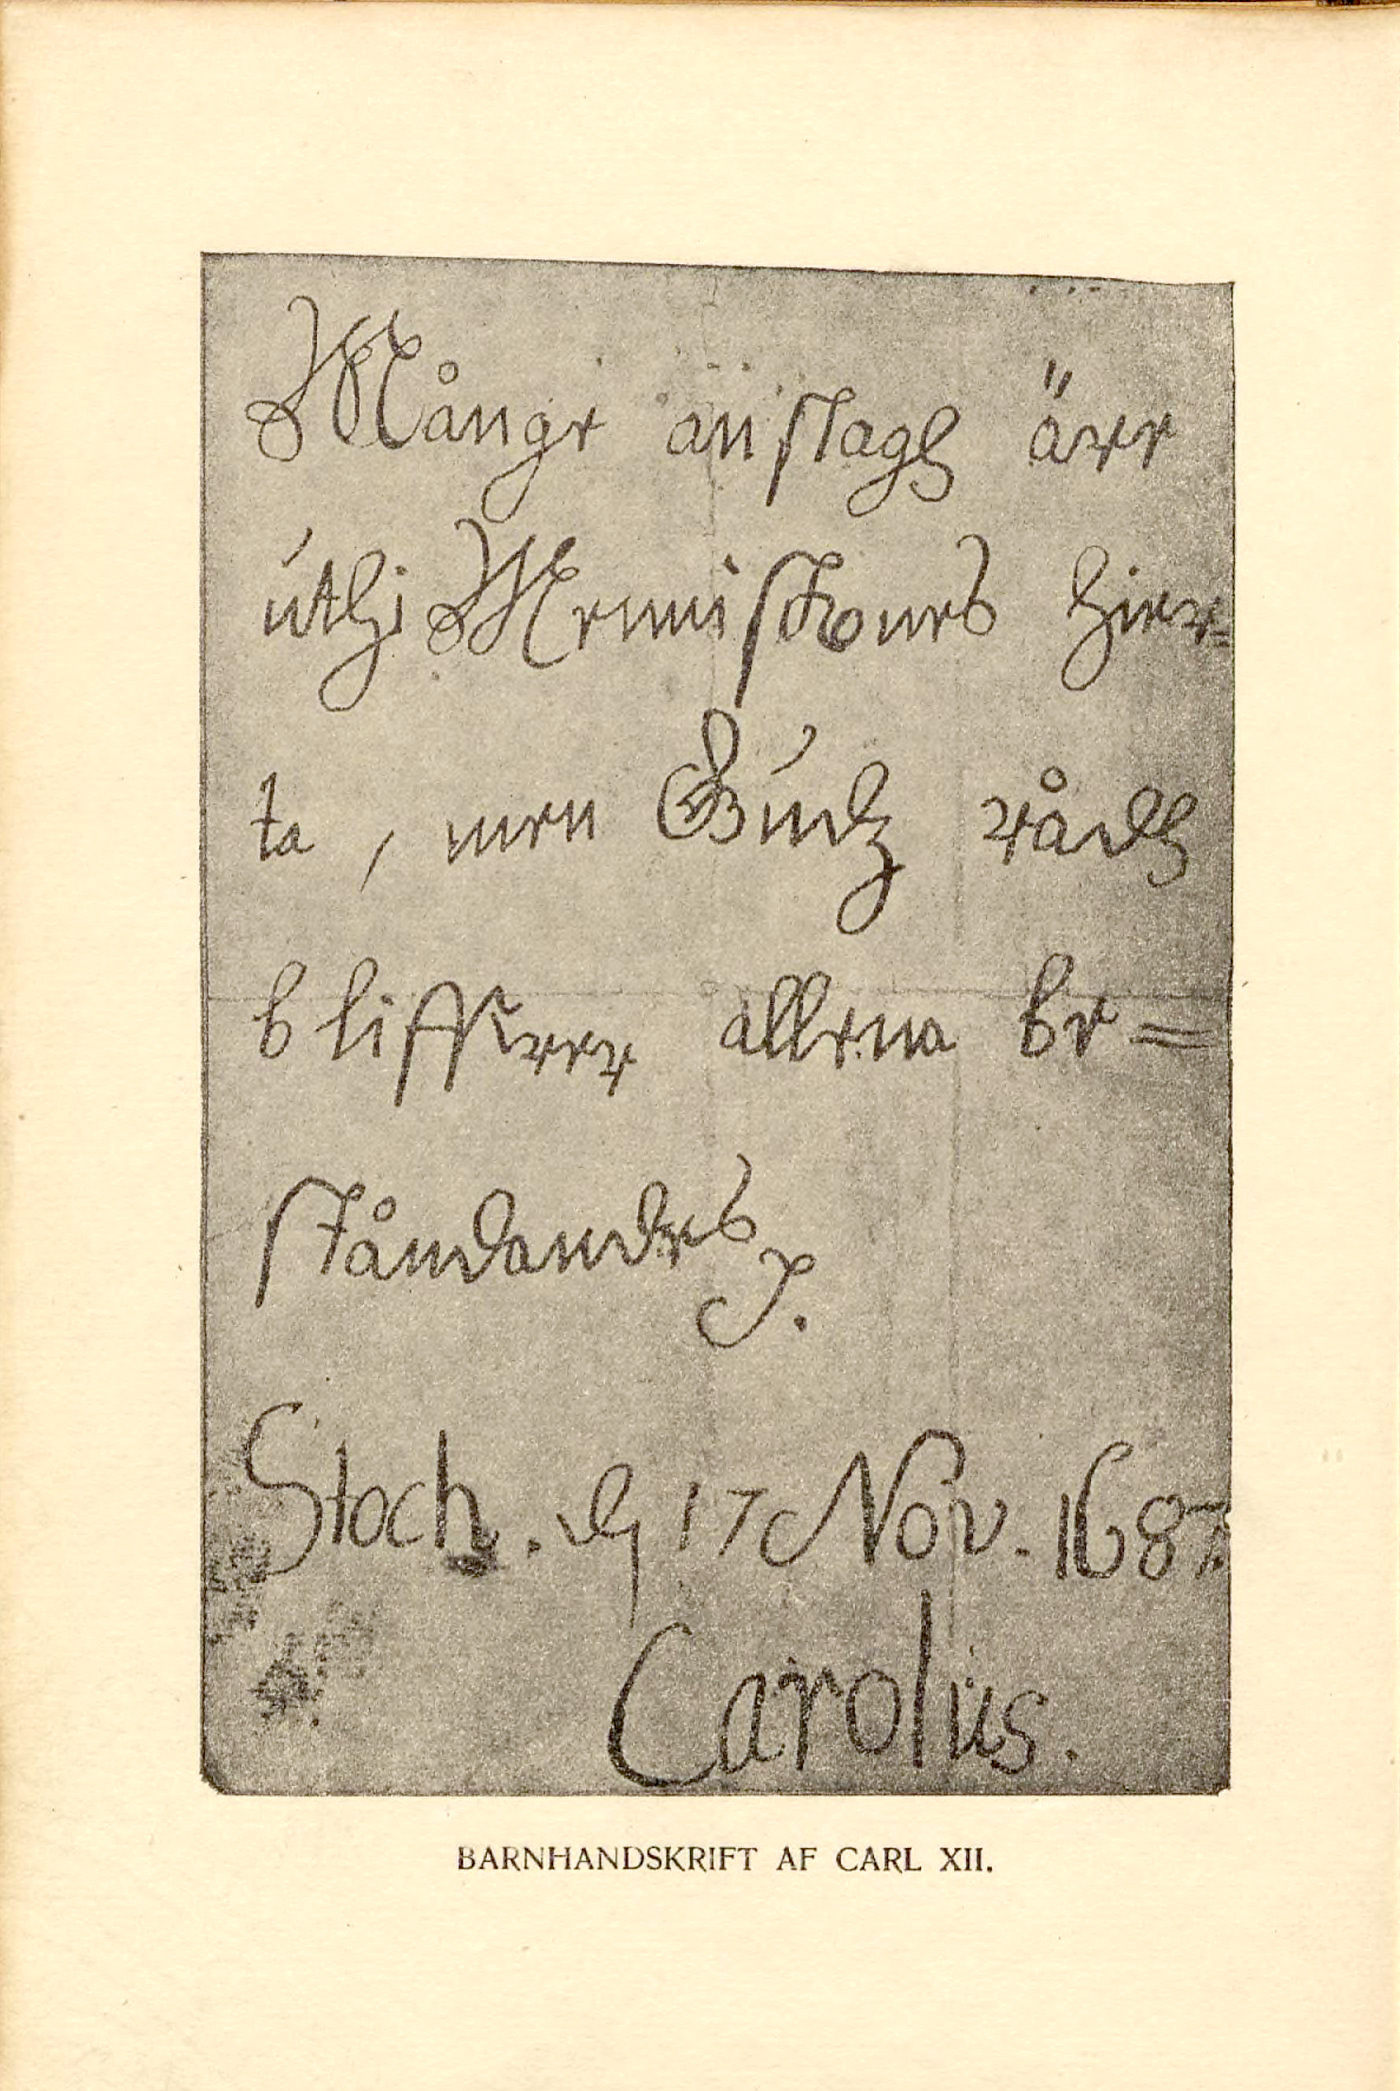 Månge anslagh äre
uthi Menniskones hier=
ta, men Gudz rådh
bliffwer allena be=
ståndandes
Stoch. d 17 Nov. 1687.
Carolus.
BARNHANDSKRIFT AF CARL XII.